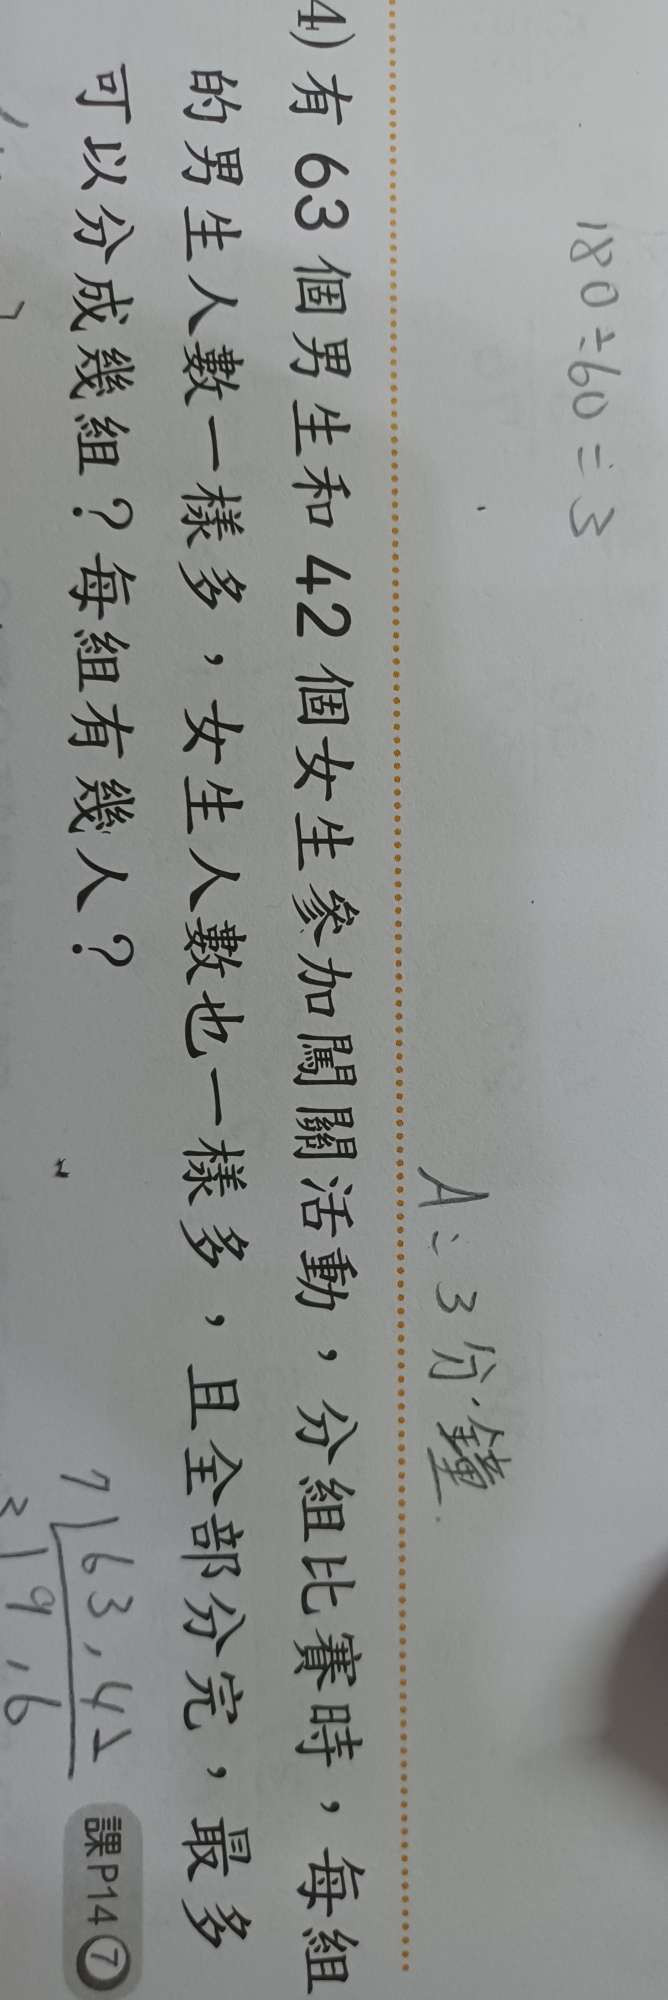 180÷60=3
A：3分鐘
4) 有63個男生和42個女生參加闖關活動，分組比賽時，每組
的男生人數一樣多，女生人數也一樣多，且全部分完，最多
可以分成幾組？每組有幾人？
7 63,42
3 9,6
課P14⑦